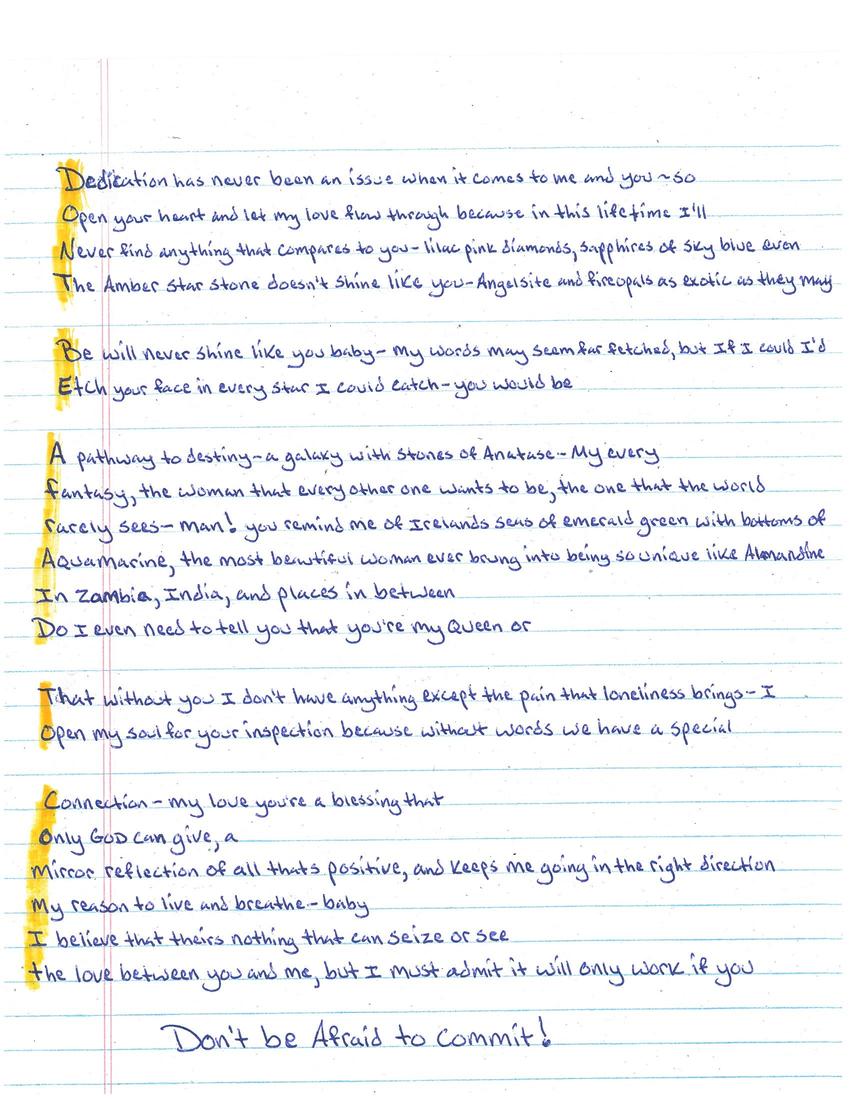 Dedication has never been an issue when it comes to me and you ~ so
Open your heart and let my love flow through because in this lifetime I'll
Never find anything that compares to you - lilac pink diamonds, sapphires of sky blue even
The Amber Star stone doesn't shine like you - Angelsite and fireopals as exotic as they may
Be will never shine like you baby - my words may seem far fetched, but If I could I'd
Etch your face in every star I could catch - you would be
A pathway to destiny - a galaxy with stones of Anatase - My every
fantasy, the woman that every other one wants to be, the one that the world
rarely sees - man! you remind me of Irelands seas of emerald green with bottoms of
Aquamarine, the most beautiful woman ever brung into being so unique like Almandine
In Zambia, India, and places in between
Do I even need to tell you that you're my Queen or
That without you I don't have anything except the pain that loneliness brings - I
Open my soul for your inspection because without words we have a special
Connection - my love you're a blessing that
Only GOD can give, a
Mirror reflection of all thats positive, and keeps me going in the right direction
My reason to live and breathe - baby
I believe that theirs nothing that can seize or see
the love between you and me, but I must admit it will only work if you
Don't be Afraid to commit!